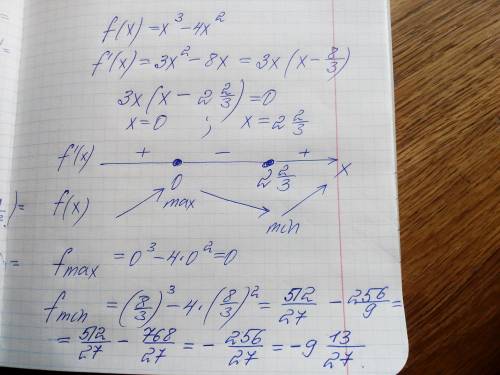 f(x) = x³ - 4x²
f'(x) = 3x² - 8x = 3x(x - 8/3)
3x(x - 2 2/3) = 0
x = 0 ; x = 2 2/3
f'(x) + - + x
0 2 2/3
f(x) max min
f max = 0³ - 4·0² = 0
f min = (8/3)³ - 4·(8/3)² = 512/27 - 256/9 =
= 512/27 - 768/27 = - 256/27 = -9 13/27.